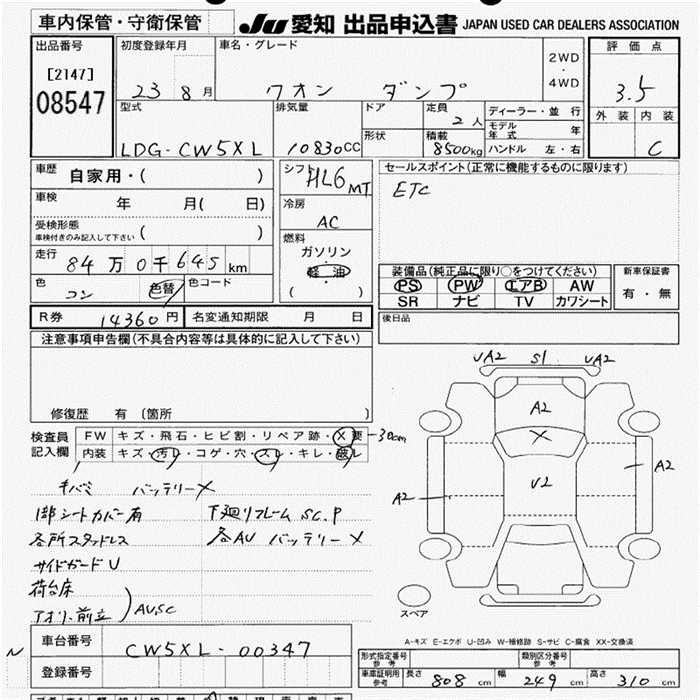 車内保管・守衛保管
JU 愛知 出品申込書 JAPAN USED CAR DEALERS ASSOCIATION
出品番号
[2147]
08547
初度登録年月
23 8 月
車名・グレード
クオン ダンプ
2WD
・
4WD
評価点
3.5
外装 内装
C
型式
LDG-CW5XL
排気量
10830cc
ドア
形状
定員
2人
積載
8500kg
ディーラー・並行
モデル年式 年
ハンドル 左・右
車歴 自家用・( )
車検 年 月( 日)
受検形態
車検付きのみ記入して下さい ( )
走行
84万0千645km
色
コン
色替
色コード
R券 14360円
名変通知期限 月 日
シフト
HL6 MT
冷房
AC
燃料
ガソリン
・
軽油
( )
セールスポイント(正常に機能するものに限ります)
ETC
装備品(純正品に限り○をつけてください)
PS PW エアB AW
SR ナビ TV カワシート
新車保証書
有・無
後日品
注意事項申告欄(不具合内容等は具体的に記入して下さい)
修復歴 有 〔箇所 〕
検査員
記入欄
FW キズ・飛石・ヒビ割・リペア跡・X要 -30cm
内装 キズ・汚レ・コゲ・穴・スレ・キレ・破レ
バッテリーX
1部シートカバー有 下廻りフレーム SC.P
各所スタッドレス 各AU バッテリーX
サイドガードU
荷台床
アオリ.前立 )AU,SC
UA2 S1 UA2
A2
X
U2
A2
A2
スペア
A-キズ E-エクボ U-凹み W-補修跡 S-サビ C-腐食 XX-交換済
N
車台番号 CW5XL-00347
登録番号
形式指定番号
参考
類別区分番号
参考
車庫証明用
参考
長さ 808 cm 幅 249 cm 高さ 310 cm